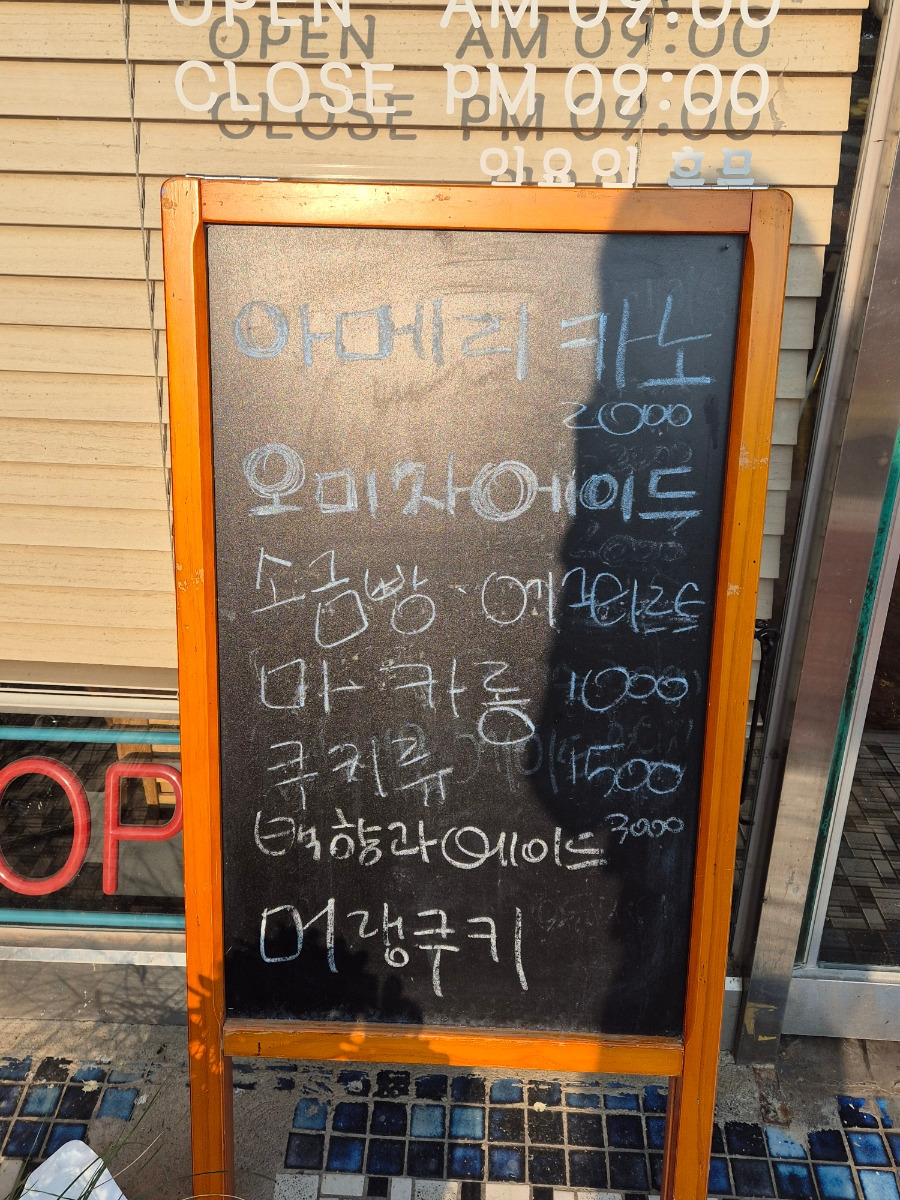 OPEN AM 09:00
CLOSE PM 09:00
일요일 휴무
아메리카노
2000
오미자에이드
소금빵·에그타르트
마카롱 1000
쿠키류 1500
백향과에이드 3000
머랭쿠키
OP